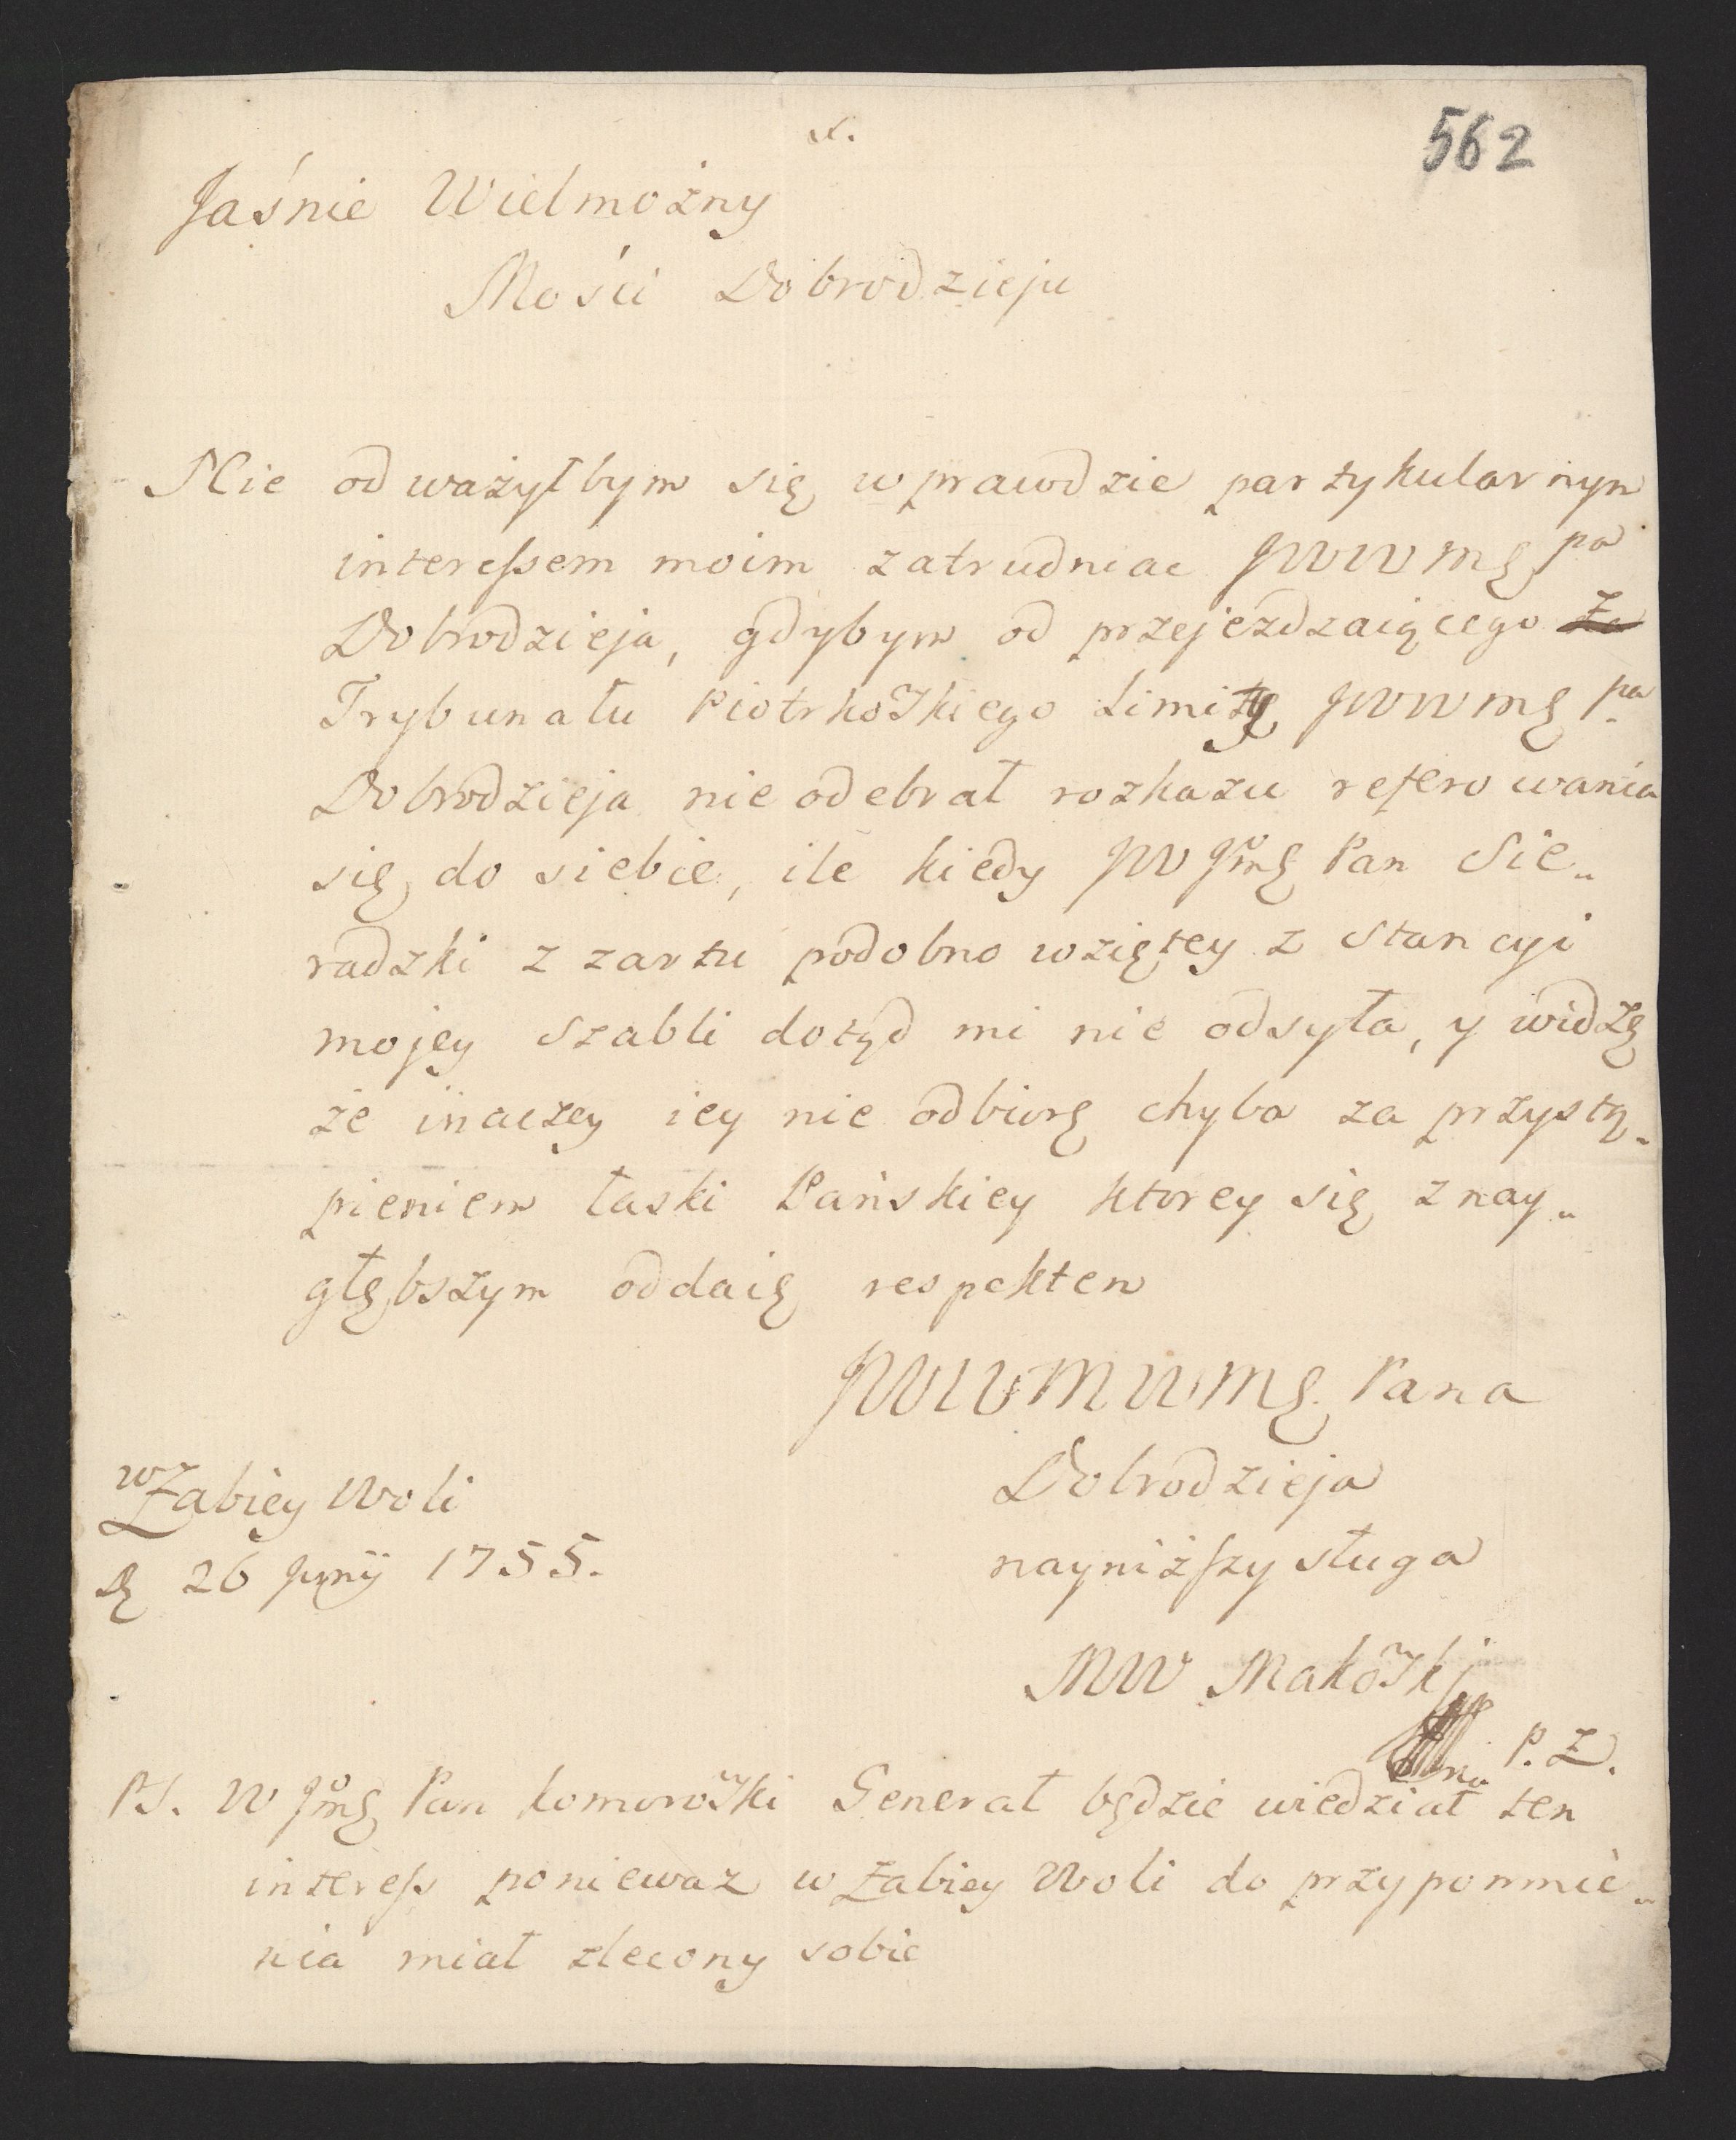 562
Jaśnie Wielmożny
Mości Dobrodzieju
Nie odważyłbym się wprawdzie partykularnym
interessem moim zatrudniac JWWMę Pa
Dobrodzieja, gdybym od przejezdzaiącego
Trybunału Piotrkoskiego Limitę JWWMę Pa
Dobrodzieja nie odebrał rozkazu referowania
się do siebie, ile kiedy JW Jmę Pan Sie„
radzki z zartu podobno wziętey z Stancyi
mojey Szabli dotąd mi nie odsyła, y widzę
że inaczey iey nie odbiorę chyba za przystą„
pieniem łaski Pańskiey ktorey się z nay„
głębszym oddaię respektem
JWWMWMę Pana
Dobrodzieja
nayniższy sługa
MW Makoski
P. Z.
w Żabiey Woli
d 26 Junij 1755.
PS. W Jmę Pan Komoroski Generał będzie wiedział ten
interess poniewaz w Żabiey Woli do przypomnie„
nia miał zlecony sobie